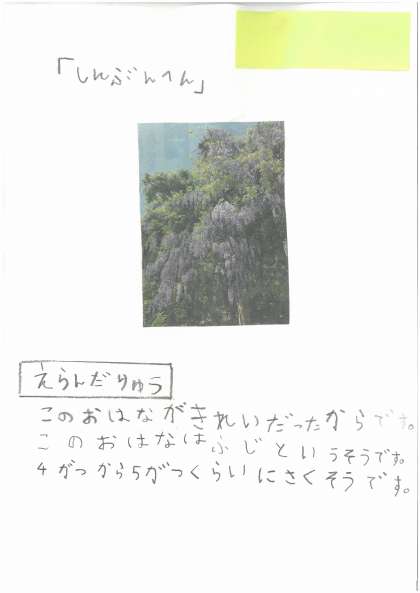 「しんぶんへん」
えらんだりゅう
このおはながきれいだったからです。
このおはなはふじというそうです。
4がつから5がつくらいにさくそうです。